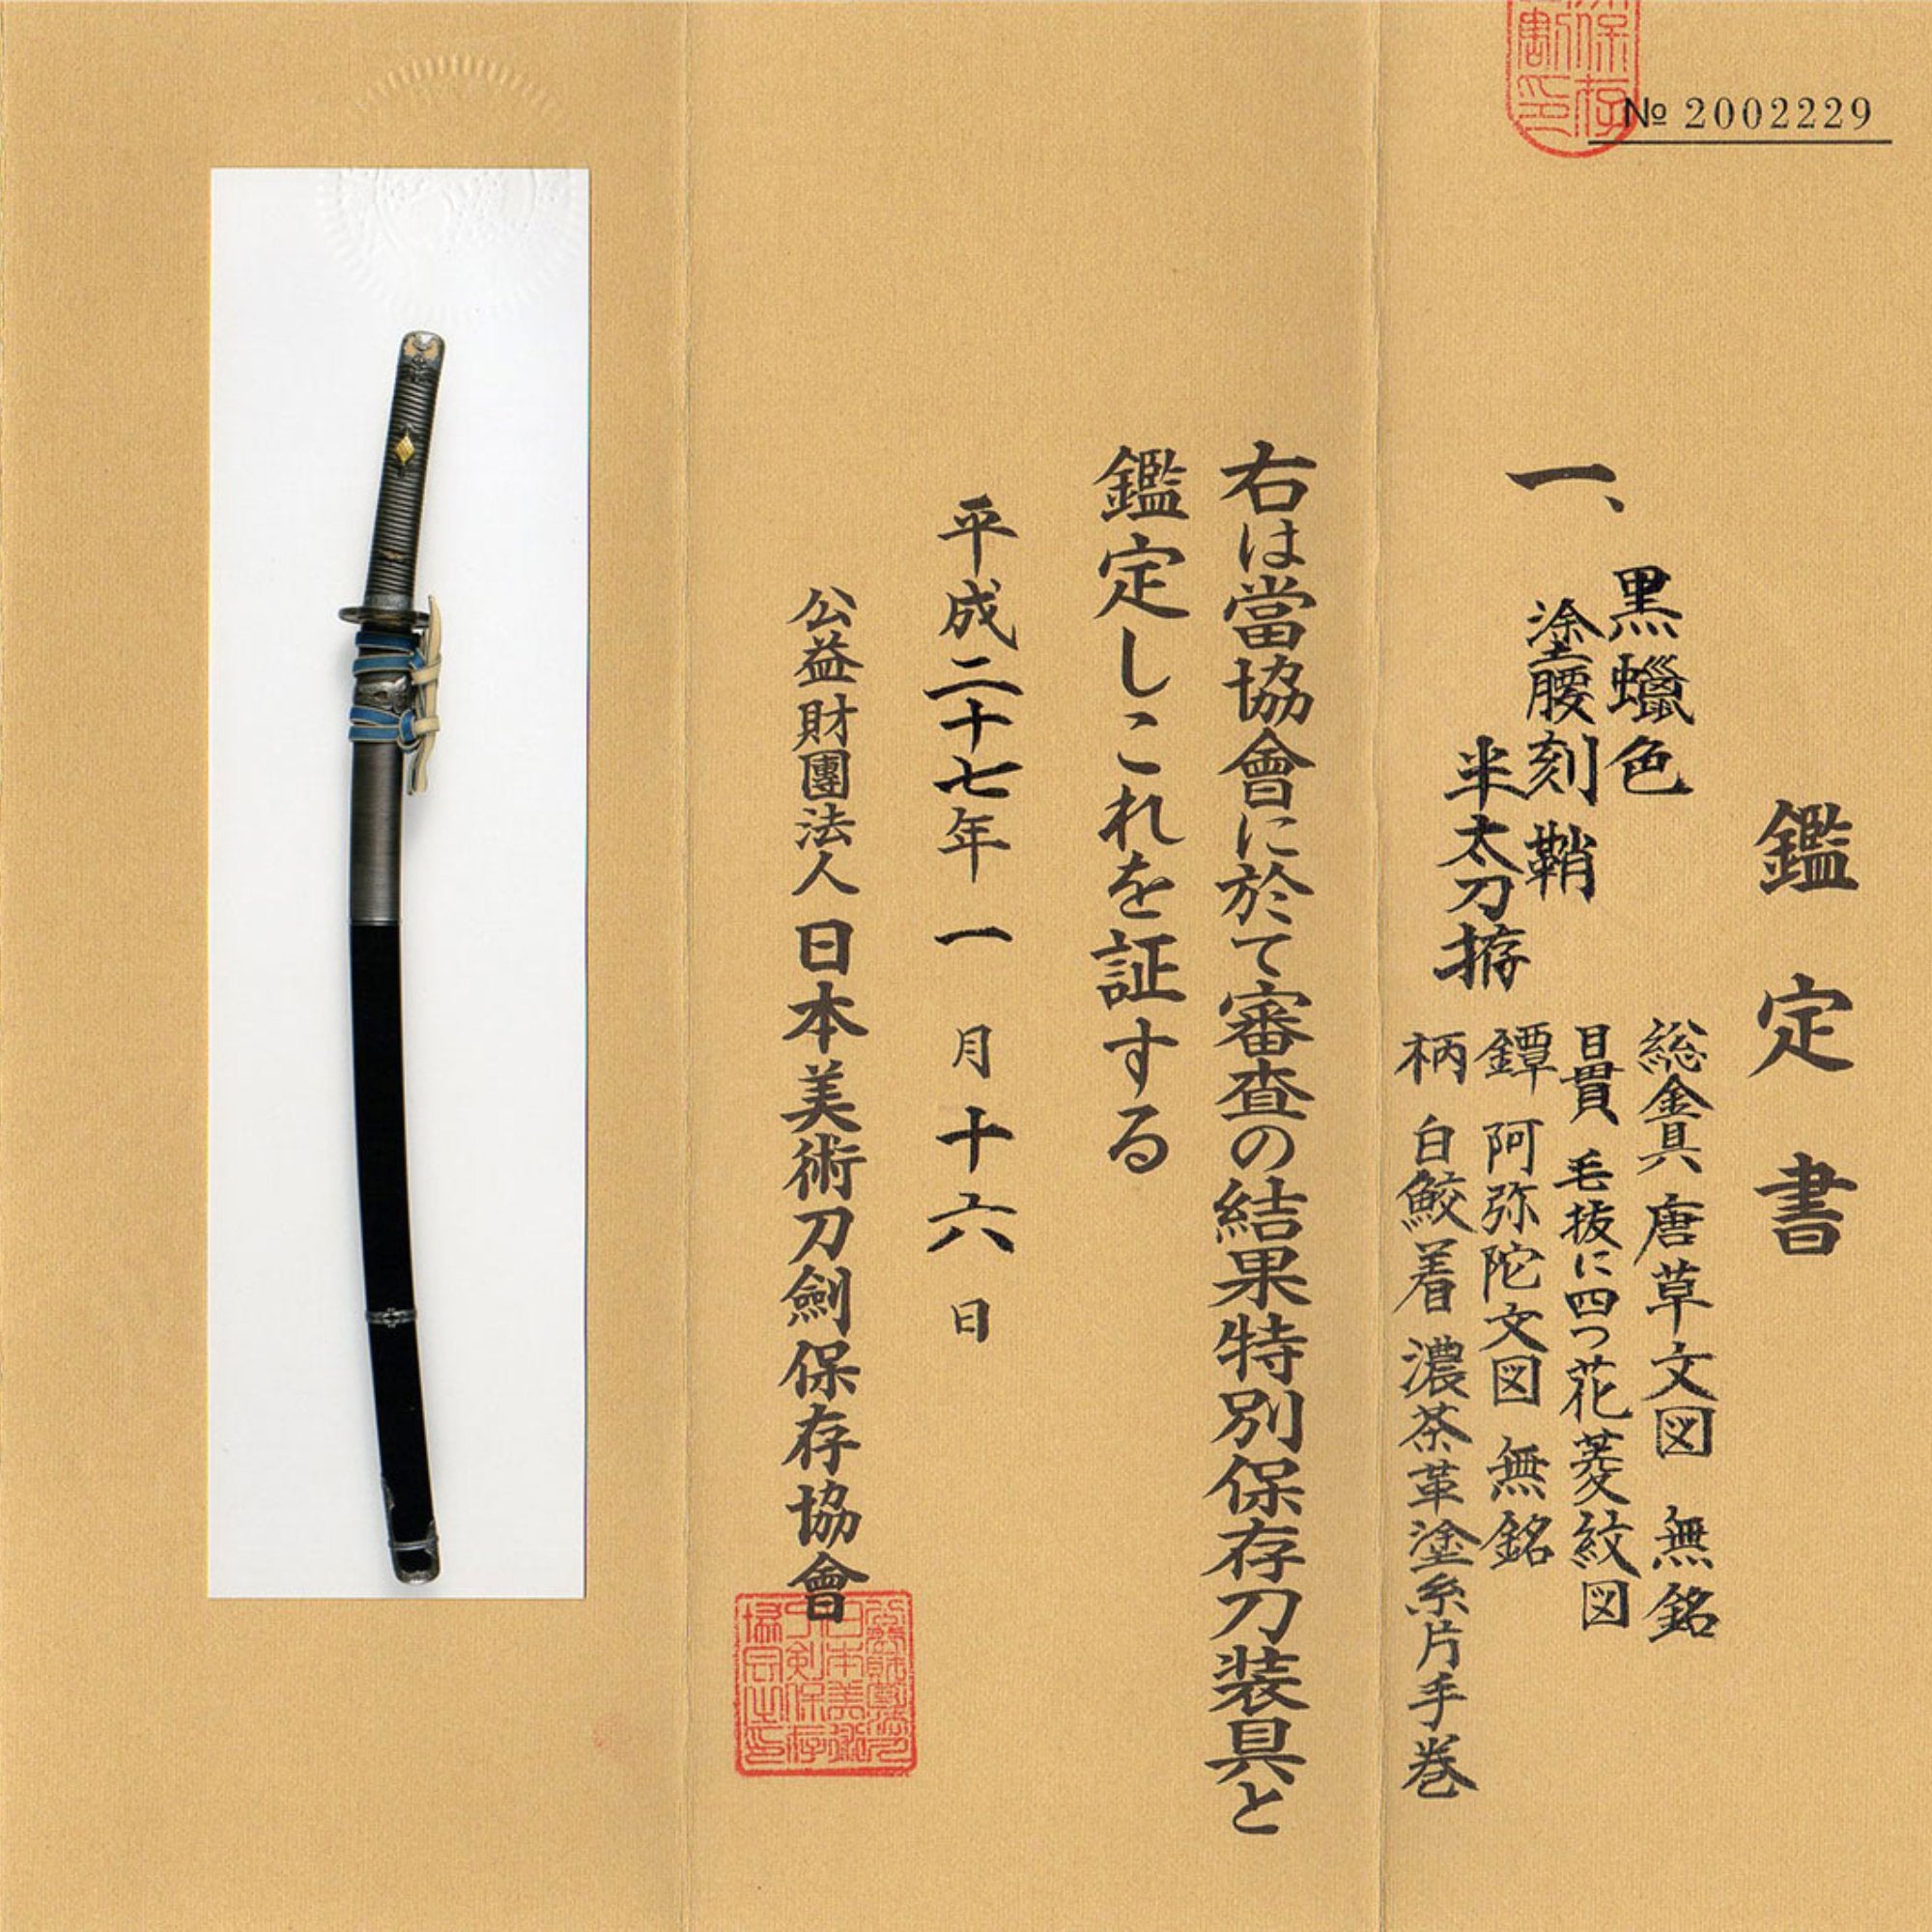 № 2002229
鑑定書
一、
黒蠟色
塗腰刻鞘
半太刀拵
総金具 唐草文図 無銘
目貫 毛抜に四つ花菱紋図
鐔 阿弥陀文図 無銘
柄 白鮫着 濃茶革塗糸片手巻
右は當協會に於て審査の結果特別保存刀装具と
鑑定しこれを証する
平成二十七年一月十六日
公益財團法人日本美術刀劍保存協會